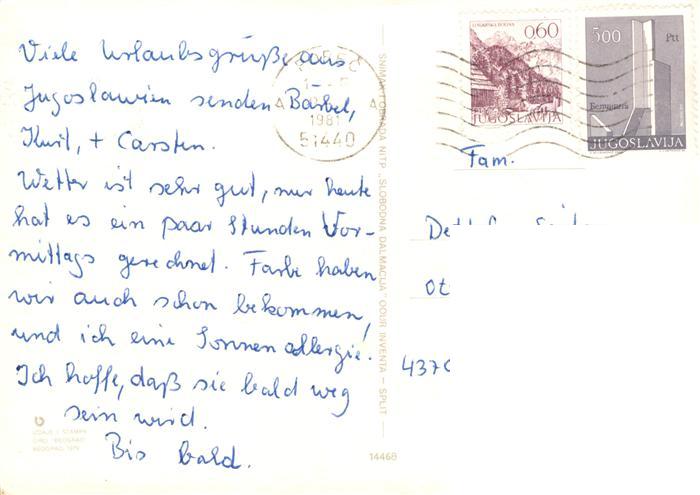 Viele Urlaubsgrüße aus
Jugoslawien senden Bärbel,
Kurt, + Carsten.
Wetter ist sehr gut, nur heute
hat es ein paar Stunden Vor-
mittags gerechnet. Farbe haben
wir auch schon bekommen,
und ich eine Sonnenallergie!
Ich hoffe, daß sie bald weg
sein wird.
Bis bald.
IZDAJE I ŠTAMPA
BEOGRAD 1979
14468
SNIMAK I OBRADA NITP „SLOBODNA DALMACIJA" OOUR INVENTA — SPLIT
1981
51440
0.60
JUGOSLAVIJA
500 Ptt
JUGOSLAVIJA
Fam.
Det
Ot
437